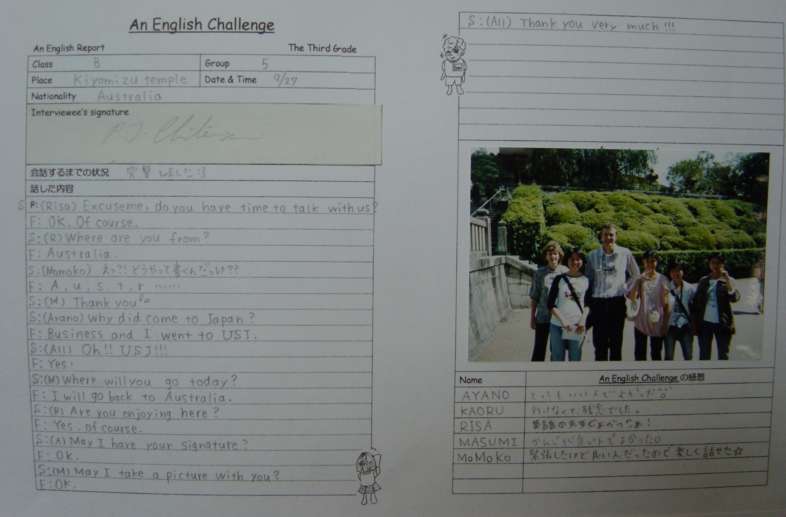 An English Challenge
An English Report The Third Grade
Class B Group 5
Place Kiyomizu temple Date & Time 9/27
Nationality Australia
Interviewee's signature
会話するまでの状況 突撃しました:3
話した内容
S: (Risa) Excuseme, do you have time to talk with us?
F: OK. Of course.
S: (R) Where are you from?
F: Australia.
S: (Momoko) えっ?! どうやって書くんだっけ??
F: A, u, s, t, r ……
S: (M) Thank you
S: (Ayano) Why did come to Japan?
F: Business and I went to USJ.
S: (All) Oh!! USJ!!!
F: Yes.
S: (M) Where will you go today?
F: I will go back to Australia.
S: (R) Are you enjoying here?
F: Yes, of course.
S: (A) May I have your signature?
F: OK.
S: (M) May I take a picture with you?
F: OK.
S: (All) Thank you very much!!!
Name An English Challenge の感想
AYANO とってもいい人でよかった
KAORU 行けなくて残念でした。
RISA
MASUMI
MoMoKo 緊張したけど良い人だったので楽しく話せた☆